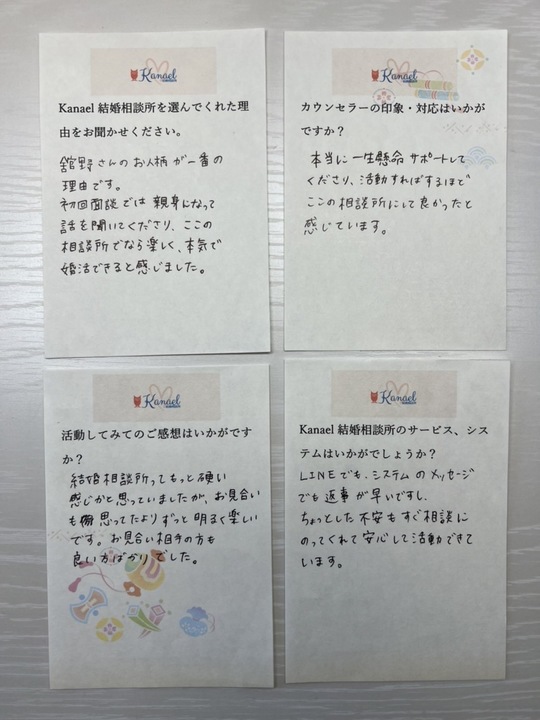 Kanael
Kanael 結婚相談所を選んでくれた理
由をお聞かせください。
舘野さんのお人柄が一番の
理由です。
初回面談では親身になって
話を聞いてくださり、ここの
相談所でなら楽しく、本気で
婚活できると感じました。
Kanael
カウンセラーの印象・対応はいかが
ですか?
本当に一生懸命サポートして
くださり、活動すればするほど
ここの相談所にして良かったと
感じています。
Kanael
活動してみてのご感想はいかがです
か?
結婚相談所ってもっと硬い
感じかと思っていましたが、お見合い
も思ってたよりずっと明るく楽しい
です。お見合い相手の方も
良い方ばかりでした。
Kanael
Kanael 結婚相談所のサービス、シス
テムはいかがでしょうか?
LINEでも、システムのメッセージ
でも返事が早いですし、
ちょっとした不安もすぐ相談に
のってくれて安心して活動できて
います。